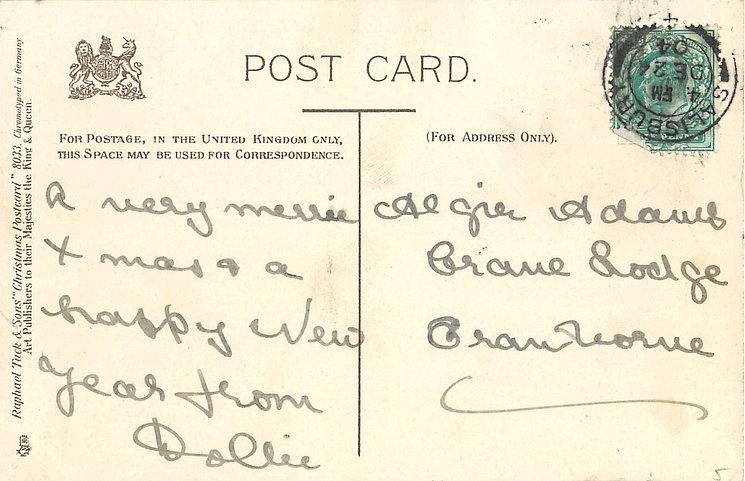 POST CARD.
FOR POSTAGE, IN THE UNITED KINGDOM ONLY,
THIS SPACE MAY BE USED FOR CORRESPONDENCE.
(FOR ADDRESS ONLY).
A very merrie
Xmas & a
happy New
Year from
Dollie
Algie Adams
Crane Lodge
Cranborne
SALISBURY
4 PM
DE 2
04
Raphael Tuck & Sons' "Christmas Postcard" 8023. Chromotyped in Germany
Art Publishers to their Majesties the King & Queen.
5